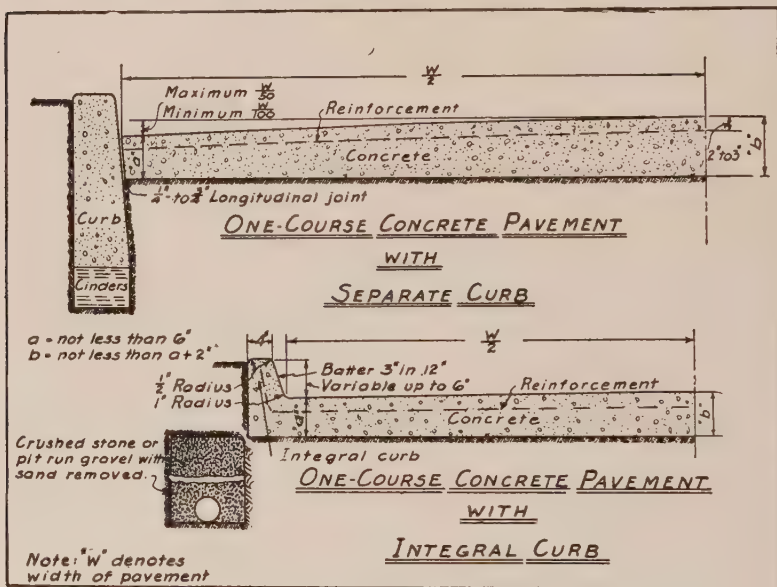 W/2
Maximum W/50
Minimum W/100
Reinforcement
"a"
Concrete
2" to 3"
"b"
Longitudinal joint
Curb
Cinders
ONE-COURSE CONCRETE PAVEMENT
WITH
SEPARATE CURB
a = not less than 6"
b = not less than a + 2"
W/2
Batter 3" in 12"
Variable up to 6"
1/2" Radius
1" Radius
Reinforcement
"a"
Concrete
"b"
Integral curb
Crushed stone or
pit run gravel with
sand removed.
ONE-COURSE CONCRETE PAVEMENT
WITH
INTEGRAL CURB
Note: "W" denotes
width of pavement